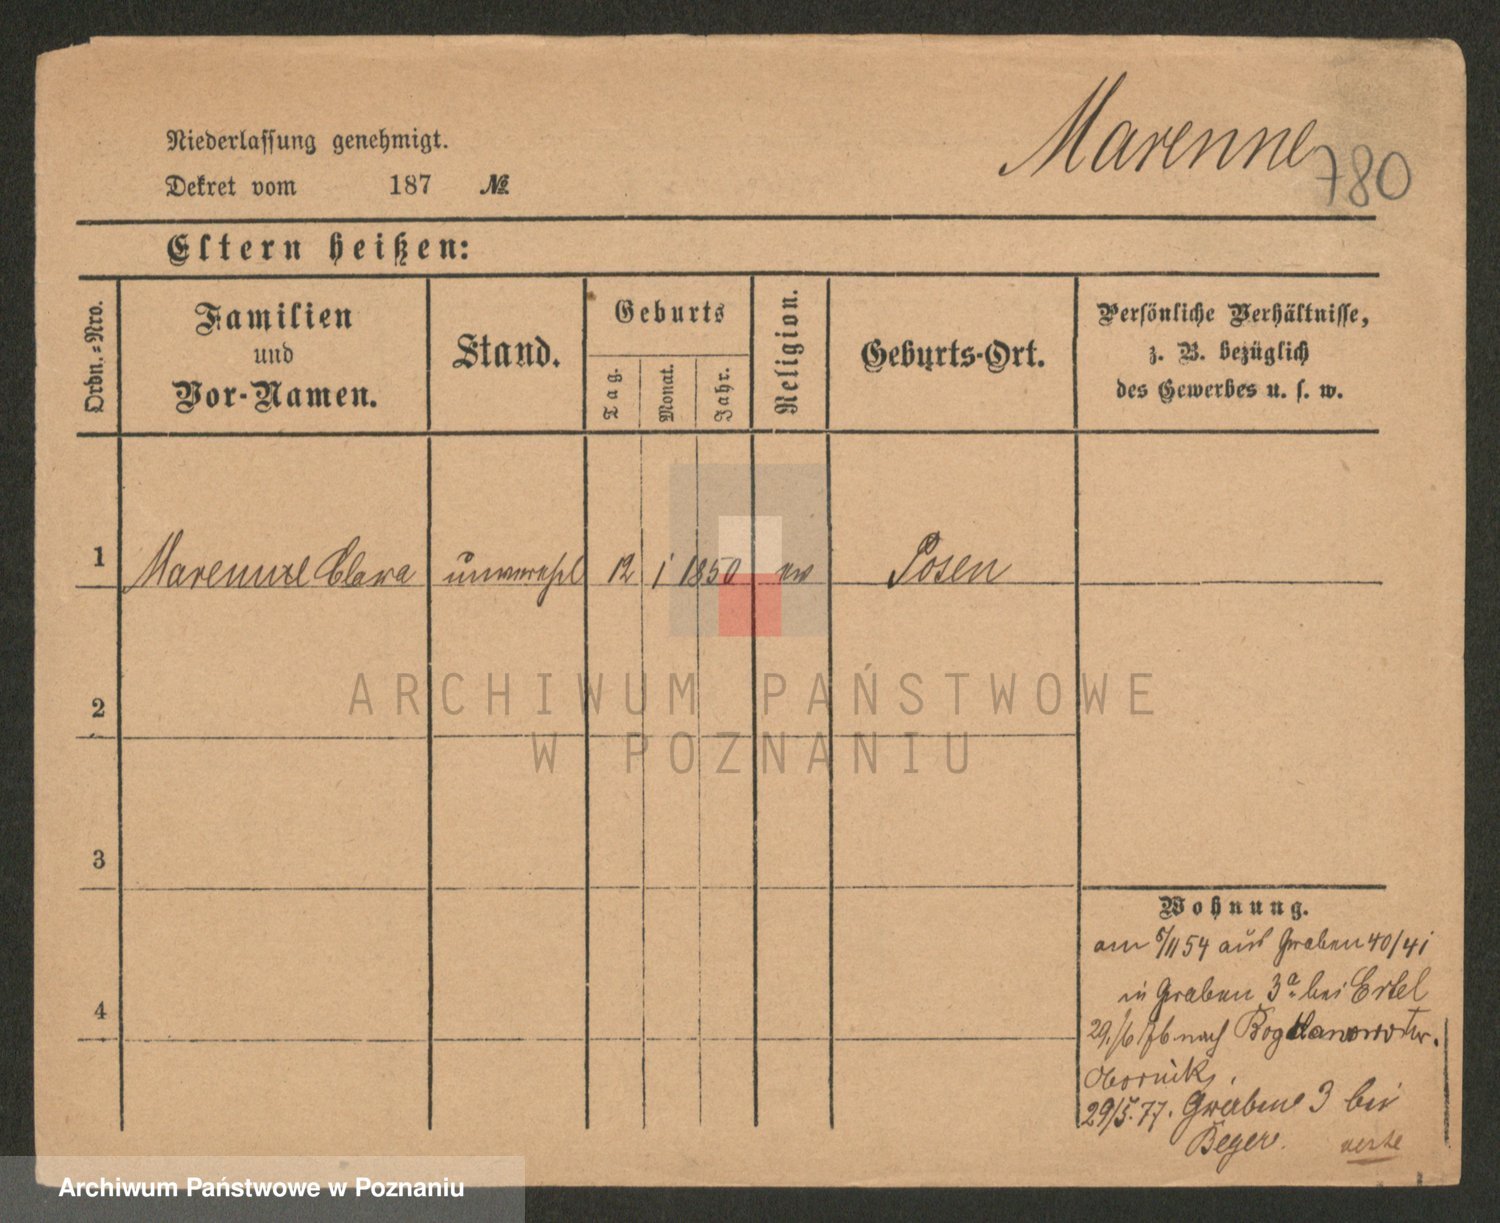 Marenne
780
Niederlassung genehmigt.
Dekret vom 187 №
Eltern heißen:
Ordn.-Nro.
Familien
und
Vor-Namen.
Stand.
Geburts
Tag.
Monat.
Jahr.
Religion.
Geburts-Ort.
Persönliche Verhältnisse,
z. B. bezüglich
des Gewerbes u. s. w.
1 Clara 12 1 1850 ev Posen
2
3
4
Wohnung.
am 5/11 54 aus Graben 40/41
in Graben 3a. bei Ertel
29./6/76 nach Bogdanowo Kr.
Obornik.
29/5.77. Graben 3 bei
Beger. verte
ARCHIWUM PAŃSTWOWE
W POZNANIU
Archiwum Państwowe w Poznaniu